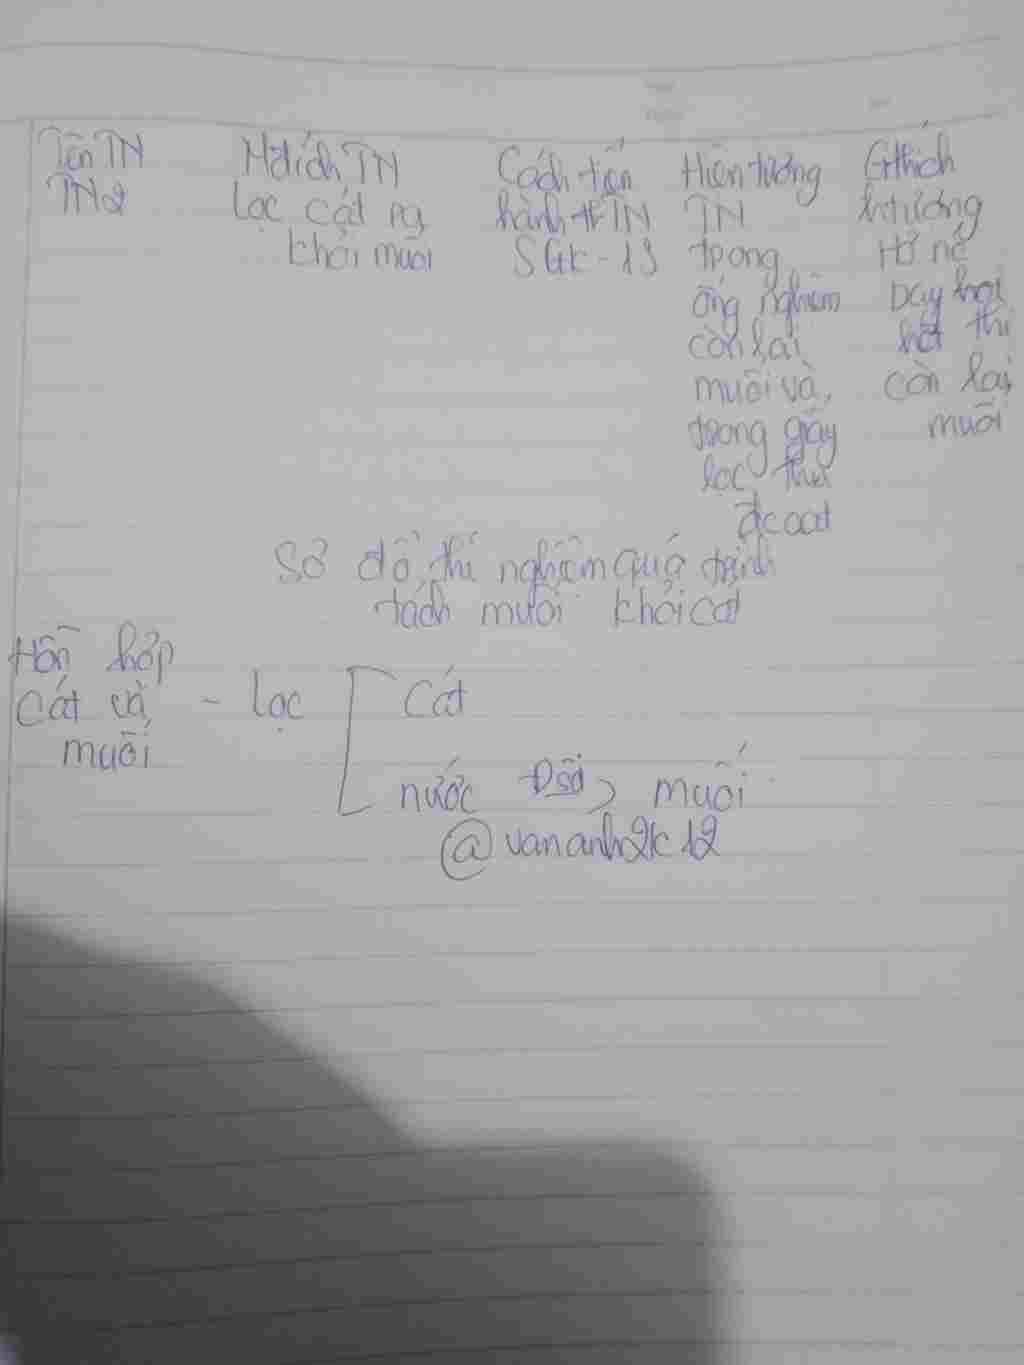 Tên TN
TN2
Mđích TN
lọc cát ra
khỏi muối
Cách tiến
hành TN
SGK - 13
Hiện tượng
TN
trong
ống nghiệm
còn lại
muối và
trong giấy
lọc thu
đc cát
Gthích
htượng
H2O
bay hơi
hết thì
còn lại
muối
Sơ đồ thí nghiệm quá trình
tách muối khỏi cát
Hỗn hợp
Cát và - lọc Cát
muối
nước muối
@vananh2k12